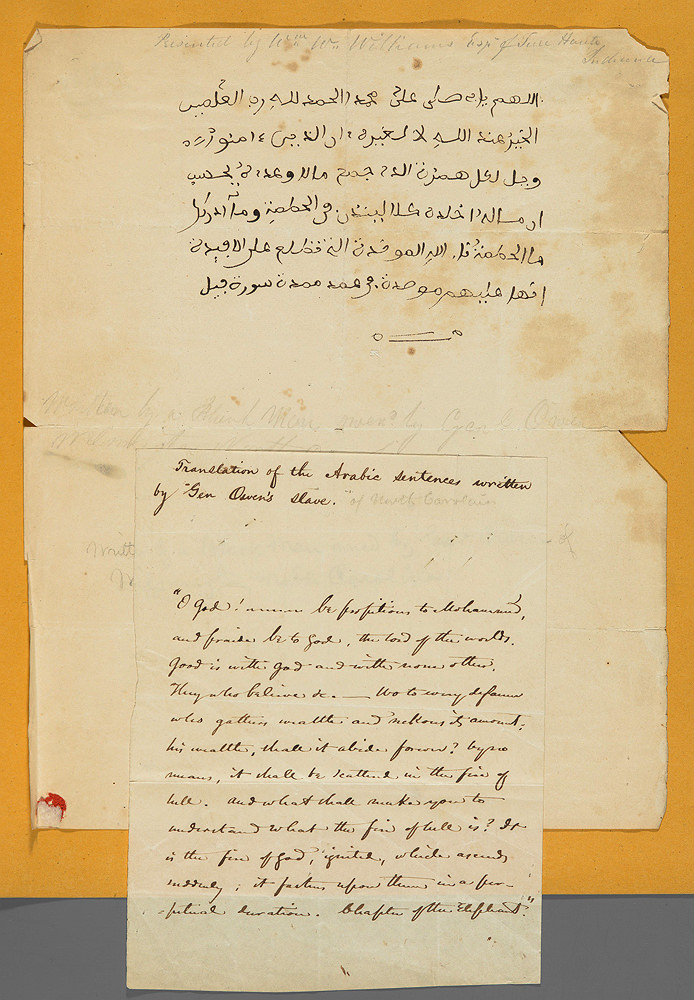 Presented by Wm W. Williams Esqr of Terre Haute
Indiana
اللهم صلى على محمد الحمد لله رب العلمين
الخير عند الله لا لغيره ان الذين ءامنو
ويل لكل همزة الذ جمع مالا وعده يحسب
ان ماله اخلده كلا لينبذن في الحطمة وما ادرك
ما الحطمة نار الله الموقدة التے تطلع على الافيدة
انها عليهم موصدة في عمد ممدة سورة فيل
Written by a Black Man, owned by Genl. Owen
Translation of the Arabic sentences written
by Gen Owen's slave. "of North Carolina
"O God! be propitious to Mohammed,
and praise be to God, the lord of the worlds.
Good is with God and with none other.
They who believe &c. — Wo to every defamer
who gathers wealth and reckons its amount;
his wealth, shall it abide forever? by no
means, it shall be scattered in the fire of
hell. And what shall make you to
understand what the fire of hell is? It
is the fire of God, ignited, which ascends
suddenly; it fastens upon them in a per-
-petual duration. Chapter of the Elephant."